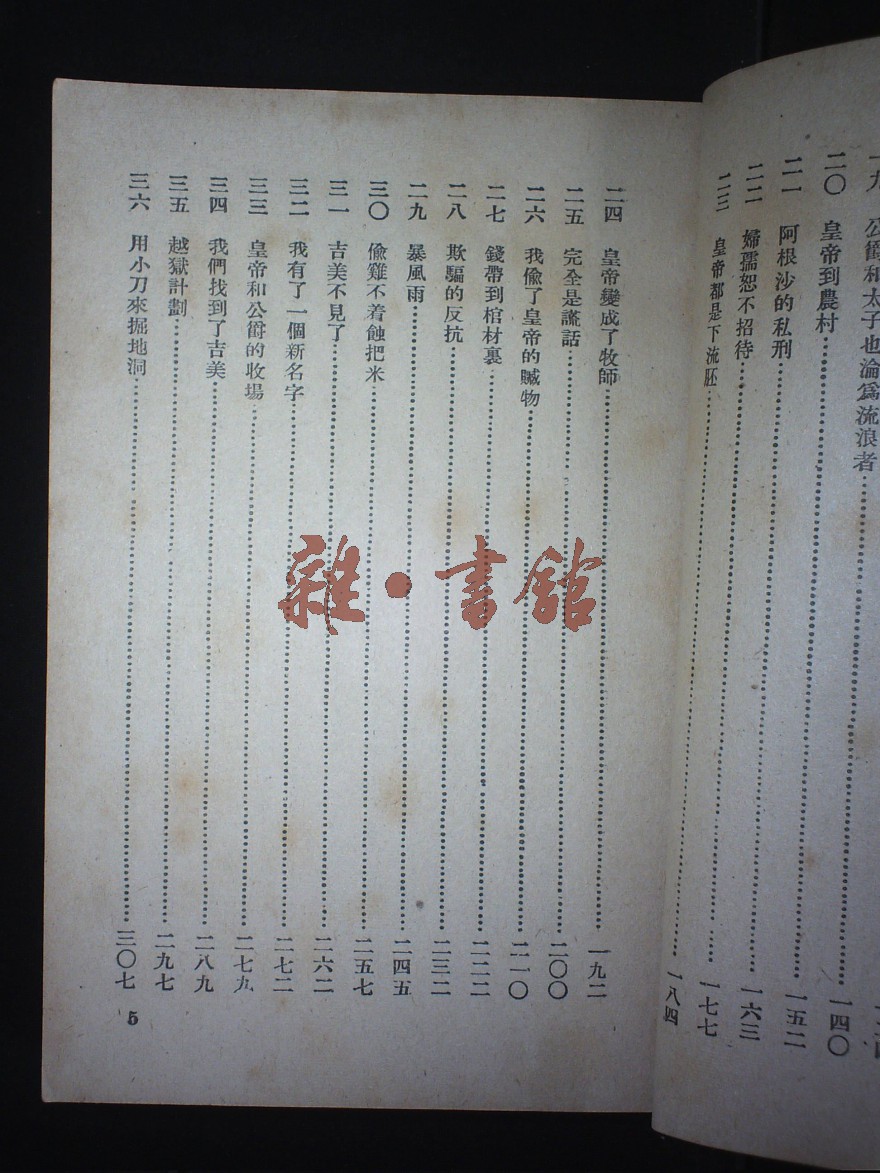 公爵和太子也淪爲流浪者
二〇 皇帝到農村 一四〇
二一 阿根沙的私刑 一五二
二二 婦孺恕不招待 一六三
二三 皇帝都是下流胚 一七七
一八四
二四 皇帝變成了牧師 一九二
二五 完全是謊話 二〇〇
二六 我偸了皇帝的贓物 二一〇
二七 錢帶到棺材裏 二二二
二八 欺騙的反抗 二三二
二九 暴風雨 二四五
三〇 偸雞不着蝕把米 二五七
三一 吉美不見了 二六二
三二 我有了一個新名字 二七二
三三 皇帝和公爵的收場 二七九
三四 我們找到了吉美 二八九
三五 越獄計劃 二九七
三六 用小刀來掘地洞 三〇七
5
雜·書館